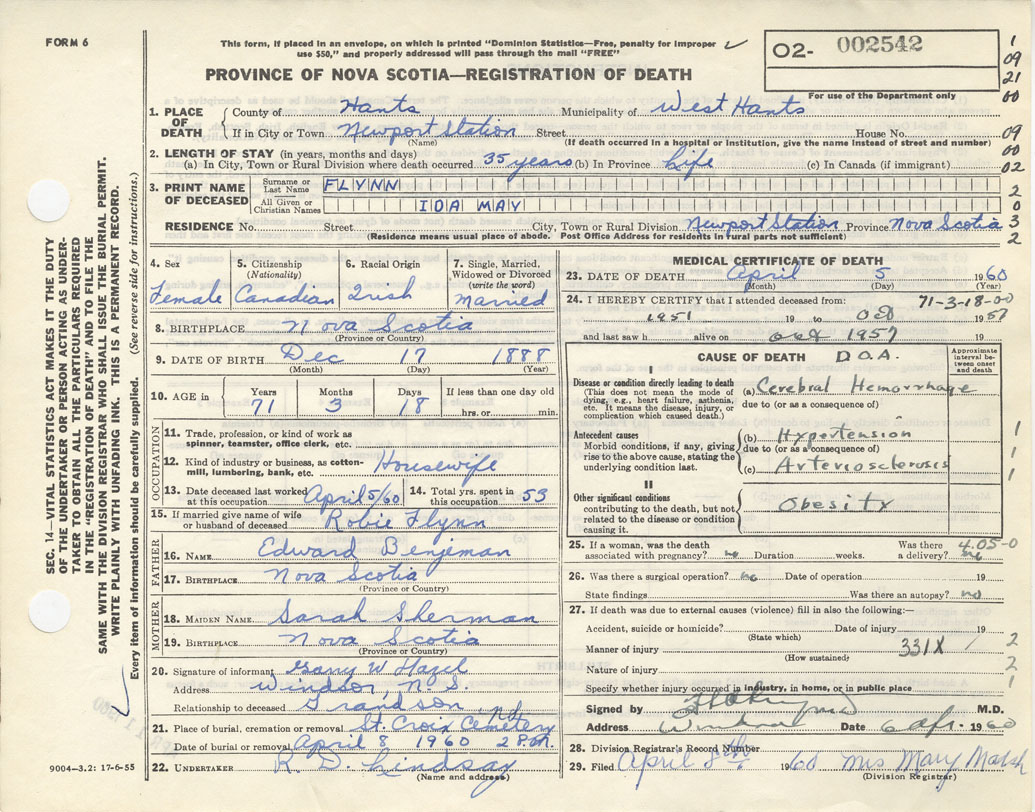 FORM 6
This form, if placed in an envelope, on which is printed "Dominion Statistics—Free, penalty for improper
use $50," and properly addressed will pass through the mail "FREE"
PROVINCE OF NOVA SCOTIA—REGISTRATION OF DEATH
02- 002542
For use of the Department only
1
09
21
00
09
00
02
2
0
3
2
1. PLACE OF DEATH
County of Hants Municipality of West Hants
If in City or Town Newport Station Street House No.
(Name) (If death occurred in a hospital or institution, give the name instead of street and number)
2. LENGTH OF STAY (in years, months and days)
(a) In City, Town or Rural Division where death occurred 35 years (b) In Province Life (c) In Canada (if immigrant)
3. PRINT NAME OF DECEASED
Surname or Last Name FLYNN
All Given or Christian Names IDA MAY
RESIDENCE No. Street City, Town or Rural Division Newport Station Province Nova Scotia
(Residence means usual place of abode. Post Office Address for residents in rural parts not sufficient)
4. Sex
Female
5. Citizenship
(Nationality)
Canadian
6. Racial Origin
Irish
7. Single, Married,
Widowed or Divorced
(write the word)
Married
8. BIRTHPLACE Nova Scotia
(Province or Country)
9. DATE OF BIRTH Dec 17 1888
(Month) (Day) (Year)
10. AGE in
Years Months Days If less than one day old
71 3 18 hrs. or min.
OCCUPATION
11. Trade, profession, or kind of work as
spinner, teamster, office clerk, etc.
12. Kind of industry or business, as cotton-
mill, lumbering, bank, etc. Housewife
13. Date deceased last worked
at this occupation April 5/60
14. Total yrs. spent in
this occupation 53
15. If married give name of wife
or husband of deceased Robie Flynn
FATHER
16. NAME Edward Benjeman
17. BIRTHPLACE Nova Scotia
(Province or Country)
MOTHER
18. MAIDEN NAME Sarah Sherman
19. BIRTHPLACE Nova Scotia
(Province or Country)
20. Signature of informant Gary W Hazel
Address Windsor, N. S.
Relationship to deceased Grandson
21. Place of burial, cremation or removal St. Croix Cemetery N.S.
Date of burial or removal April 8 1960 2 P.M.
22. UNDERTAKER R. D. Lindsay
(Name and address)
9004—3.2: 17-6-55
MEDICAL CERTIFICATE OF DEATH
23. DATE OF DEATH April 5 1960
(Month) (Day)
24. I HEREBY CERTIFY that I attended deceased from: 71-3-18-00
1951 19 to Oct 1957
and last saw h alive on Oct 1957 19
CAUSE OF DEATH D.O.A.
Approximate interval between onset and death
I
Disease or condition directly leading to death
(This does not mean the mode of
dying, e.g., heart failure, asthenia,
etc. It means the disease, injury, or
complication which caused death.)
(a) Cerebral Hemorrhage
due to (or as a consequence of)
Antecedent causes
Morbid conditions, if any, giving
rise to the above cause, stating the
underlying condition last.
(b) Hypertension
due to (or as a consequence of)
(c) Arteriosclerosis
1
1
1
II
Other significant conditions
contributing to the death, but not
related to the disease or condition
causing it.
Obesity
25. If a woman, was the death Was there 4.05-0
associated with pregnancy? no Duration weeks. a delivery? no
26. Was there a surgical operation? no Date of operation 19
State findings Was there an autopsy? no
27. If death was due to external causes (violence) fill in also the following:—
Accident, suicide or homicide? Date of injury 19
(State which)
Manner of injury 331X / 2
(How sustained)
Nature of injury 2
Specify whether injury occurred in industry, in home, or in public place 1
Signed by M.D.
Address Windsor Date 6 Apr. 1960
28. Division Registrar's Record Number
29. Filed April 8th 1960 Mrs Mary Marsh
(Division Registrar)
SEC. 14—VITAL STATISTICS ACT MAKES IT THE DUTY
OF THE UNDERTAKER OR PERSON ACTING AS UNDER-
TAKER TO OBTAIN ALL THE PARTICULARS REQUIRED
IN THE "REGISTRATION OF DEATH" AND TO FILE THE
SAME WITH THE DIVISION REGISTRAR WHO SHALL ISSUE THE BURIAL PERMIT.
WRITE PLAINLY WITH UNFADING INK. THIS IS A PERMANENT RECORD.
Every item of information should be carefully supplied. (See reverse side for instructions.)